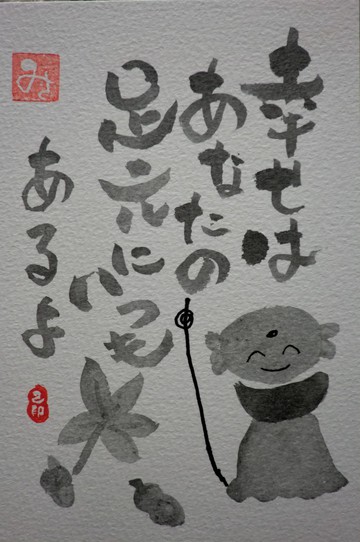 幸せは
あなたの
足元にいつも
あるよ